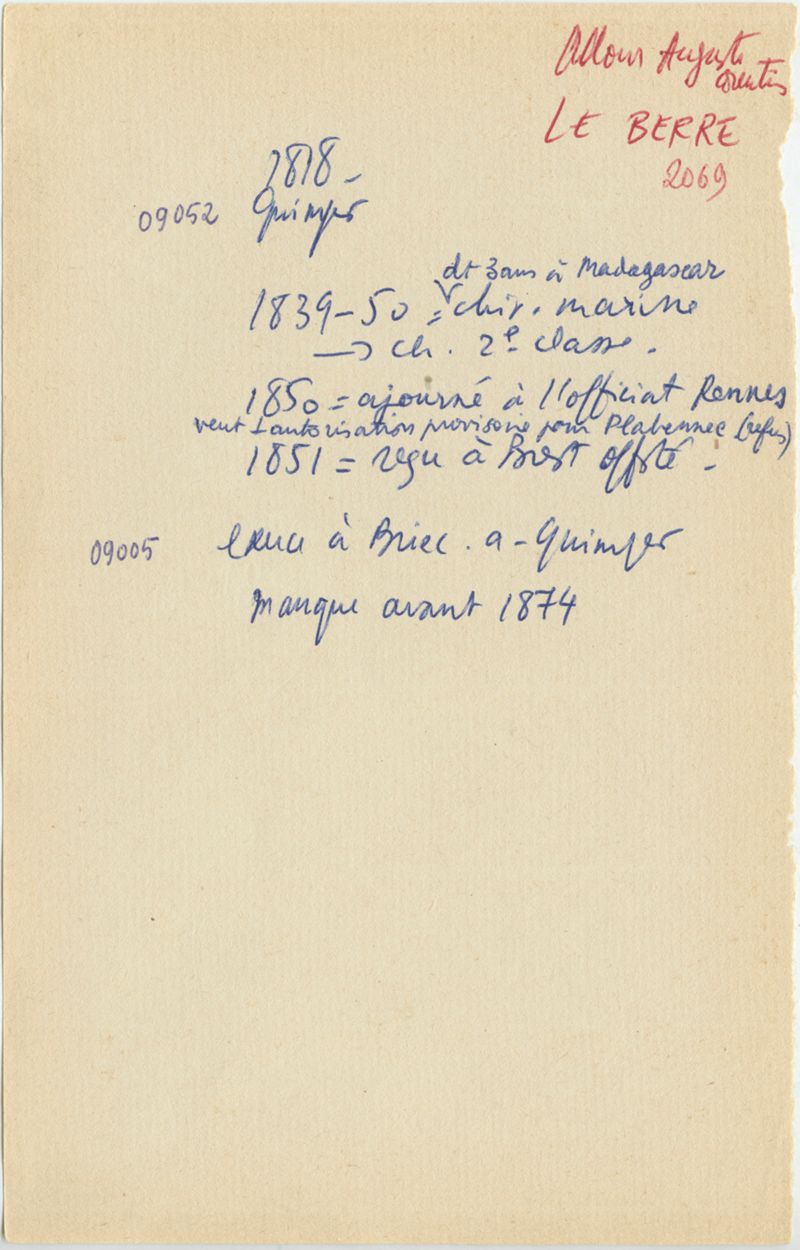 Allour Auguste
Corentin
LE BERRE
2069
1818 -
09052 Quimper
dt 3 ans à Madagascar
1839-50 = chir. marine
→ ch. 2e classe.
1850 = ajourné à l'officiat Rennes
veut 1 autorisation provisoire pour Plabennec (refus)
1851 = reçu à Brest offté -
09005 exerce à Briec. a - Quimper
manque avant 1874